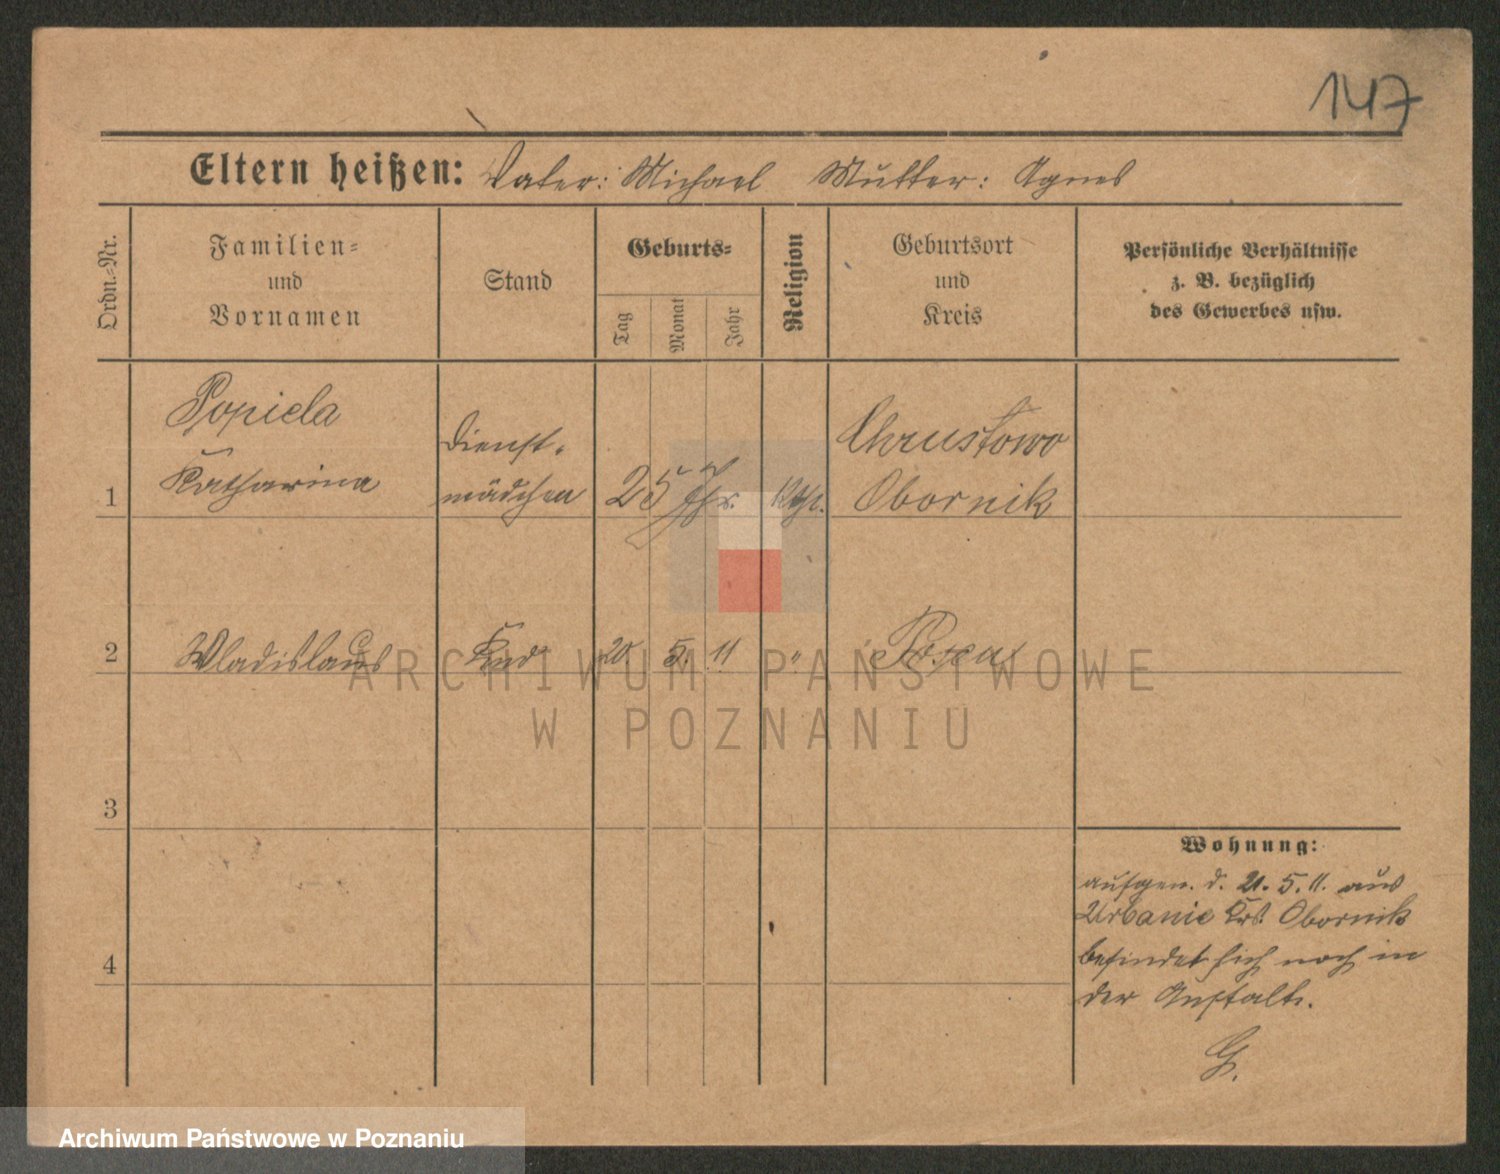 147
Eltern heißen: Vater: Michael Mutter: Agnes
Ordn.-Nr.
Familien-
und
Vornamen
Stand
Geburts-
Tag
Monat
Jahr
Religion
Geburtsort
und
Kreis
Persönliche Verhältnisse
z. B. bezüglich
des Gewerbes usw.
1
Popiela
Katharina
Dienst-
mädchen
25 Jhr.
Kth.
Chrustowo
Obornik
2
Wladislaus
Kind
20. 5. 11
"
Posen
3
4
Wohnung:
aufgen. d. 21. 5. 11. aus
Urbanie Krs. Obornik
befindet sich noch in
der Anstalt.
G.
ARCHIWUM PAŃSTWOWE
W POZNANIU
Archiwum Państwowe w Poznaniu